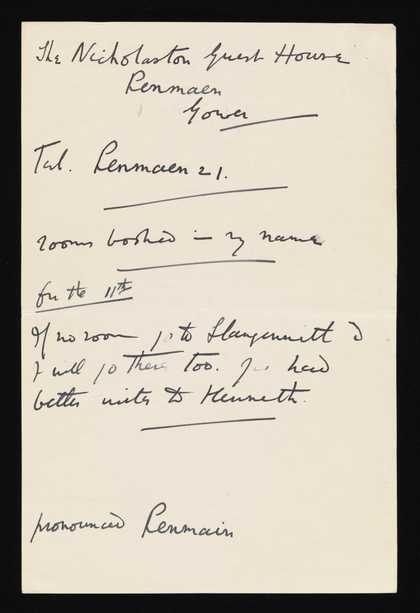 The Nicholaston Guest House
Penmaen
Gower
Tel. Penmaen 21.
rooms booked in my name
for the 11th
If no room go to Llangennith &
I will go there too. You had
better write to Kenneth.
pronounced Penmain